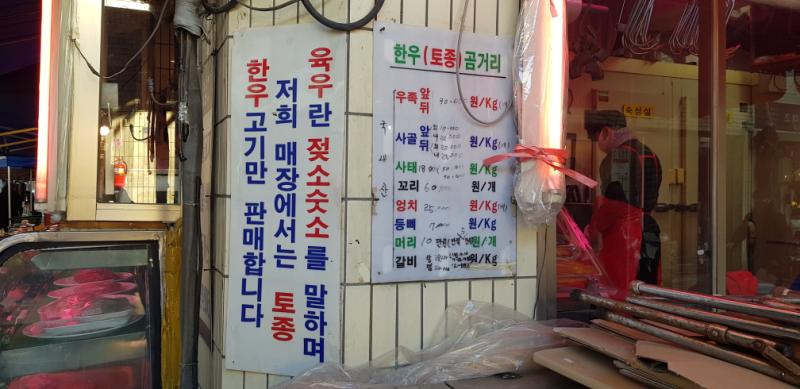 육우란 젖소숫소를 말하며
저희 매장에서는 토종
한우고기만 판매합니다
한우(토종)곰거리
국내산
우족 앞 뒤 원/Kg
사골 앞 뒤 원/Kg
사태 원/Kg
꼬리 60,000 원/개
엉치 25,000 원/Kg
등뼈 7,000 원/Kg
머리 10만원 원/개
갈비 원/Kg
숙성실